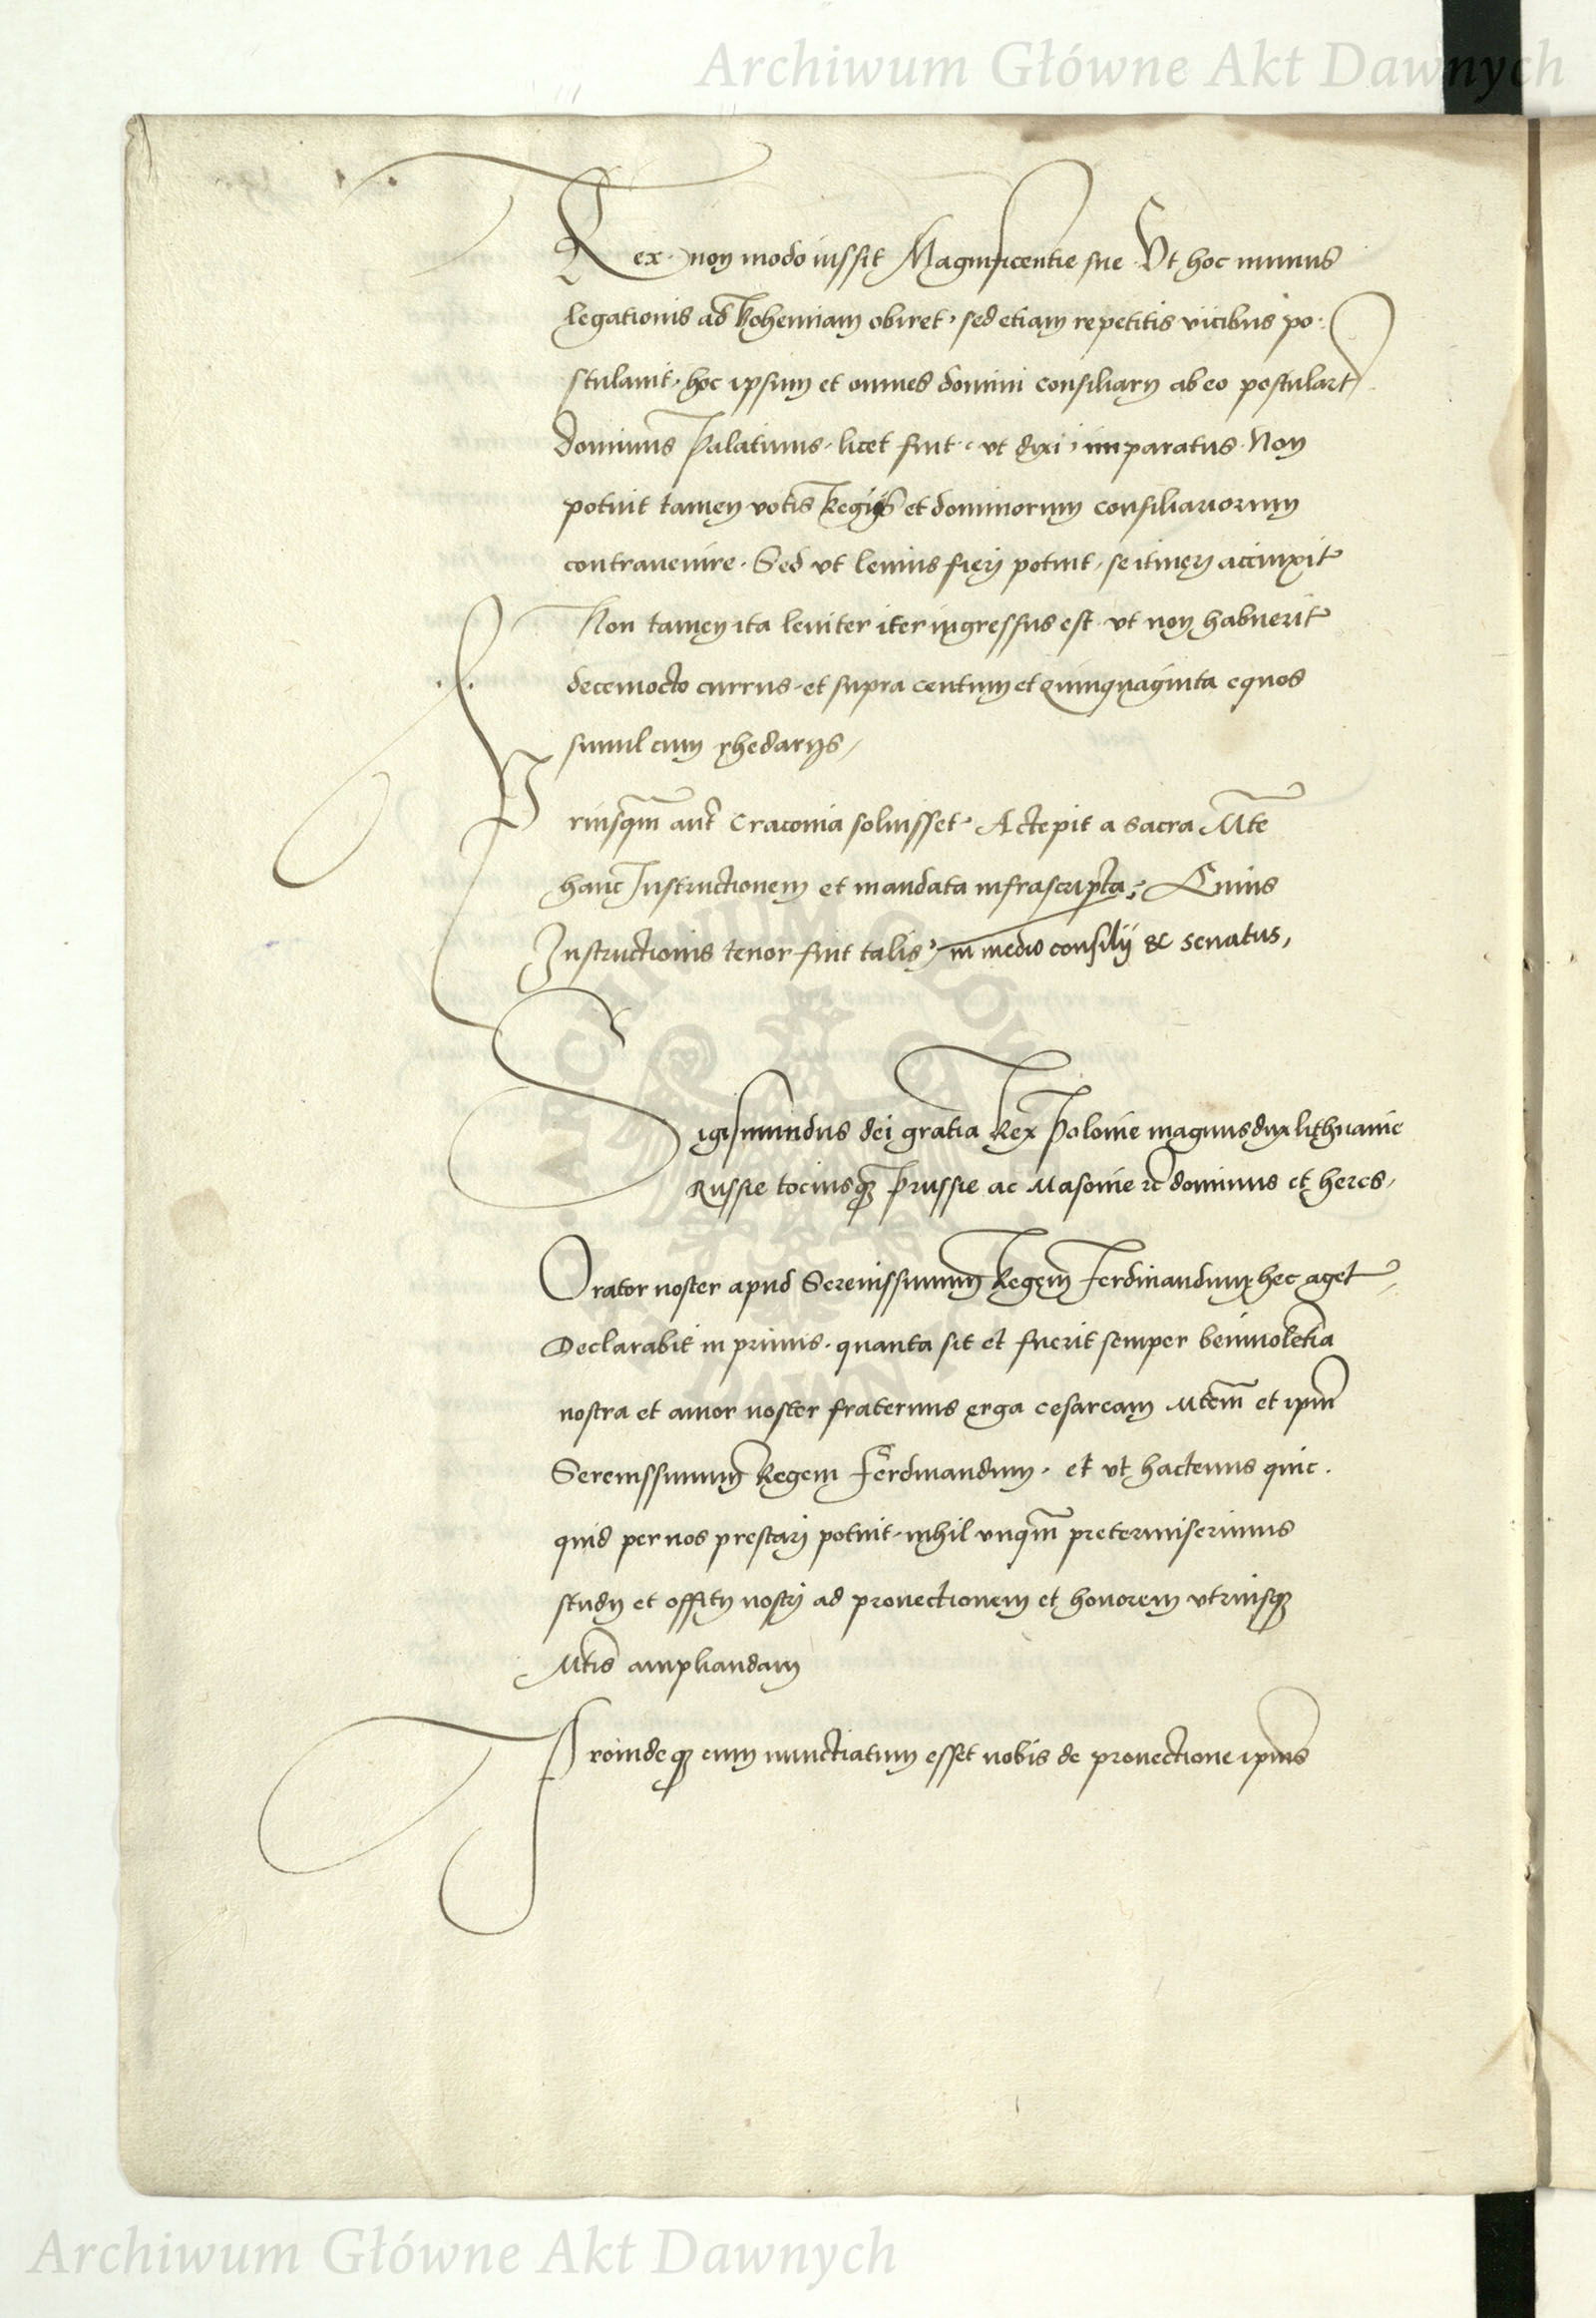 Archiwum Główne Akt Dawnych
Rex. non modo iussit Magnificentie sue. Ut hoc munus
legationis ad Bohemiam obiret, sed etiam repetitis vicibus po:
stulavit, hoc ipsum et omnes domini consiliarii ab eo postulart
Dominus Palatinus, licet fuit, ut dixi, imparatus. Non
potuit tamen votis Regiis et dominorum consiliariorum
contravenire. Sed ut levius fieri potuit, se itineri accinxit
Non tamen ita leviter iter ingressus est, ut non habuerit
decemocto currus, et supra centum et quinquaginta equos
simul cum rhedariis,
Priusqm aut Cracovia solvisset, Accepit a sacra Mte
hanc Instructionem et mandata infrascripta; Cuius
Instructionis tenor fuit talis, in medio consilij & senatus,
Sigismundus dei gratia Rex Polonie magnus dux lithuanie
Russie tociusq Prussie ac Masovie rc dominus et heres,
Orator noster apud Serenissimum Regem Ferdinandum hec aget
Declarabit in primis, quanta sit et fuerit semper benivoletia
nostra et amor noster fraternus erga cesaream Mtem et ipm
Serenissimum Regem Ferdinandum, et ut hactenus quic.
quid per nos prestari potuit, nihil unqm pretermiserimus
studii et offitii nostri ad provectionem et honorem utriusq
Mtis ampliandam
Proindeq cum nunctiatum esset nobis de provectione ipius
ARCHIWUM GŁÓWNE AKT DAWNYCH
Archiwum Główne Akt Dawnych